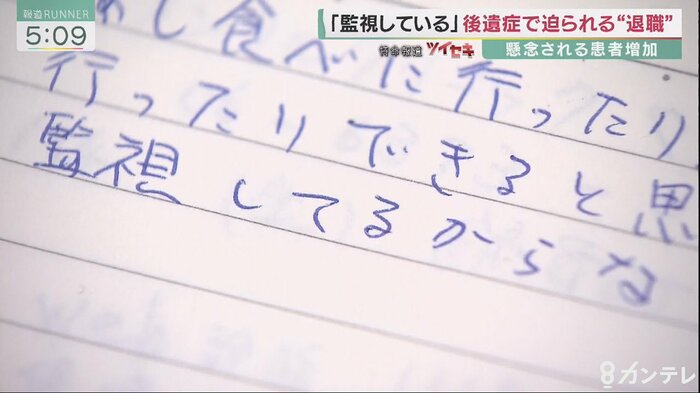 報道RUNNER
5:09
「監視している」後遺症で迫られる“退職”
特命報道 ツイセキ
懸念される患者増加
し食べた行ったり
行ったりできると思
監視してるからな
8カンテレ